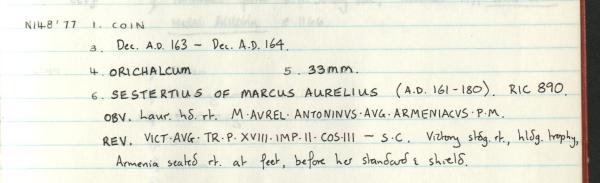 N148'77 1. COIN
3. Dec. A.D. 163 – Dec. A.D. 164.
4. ORICHALCUM 5. 33mm.
6. SESTERTIUS OF MARCUS AURELIUS (A.D. 161-180). RIC 890.
OBV. Laur. hd. rt. M·AVREL·ANTONINVS·AVG·ARMENIACVS·P·M.
REV. VICT·AVG·TR·P·XVIII·IMP·II·COS·III – S·C. Victory stdg. rt., hldg. trophy,
Armenia seated rt. at feet, before her standard & shield.